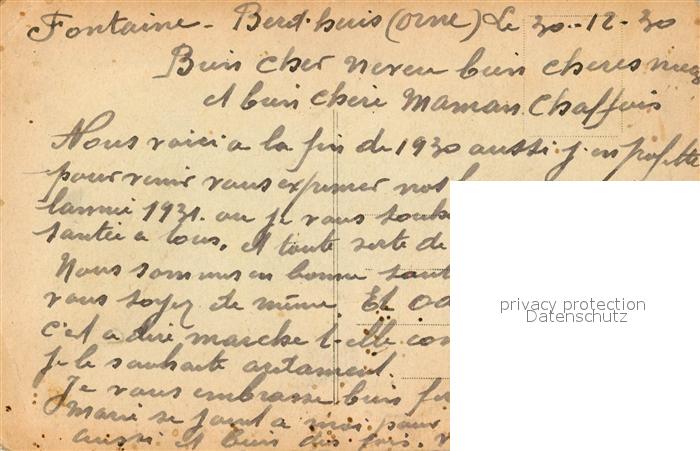 Fontaine - Berd. huis (orne) Le 30-12-30
Bien cher neveu bien cheres nieces
et bien chere Maman Chaffuis
Nous voici a la fin de 1930 aussi j'en profite
pour venir vous exprimer nos
lannée 1931. ou je vous souh
santée a tous, et toute sorte de
Nous sommes en bonne sant
vous soyez de même. Et
c'est a dire marche t-elle com
je le souhaite autament.
Je vous embrasse bien
Marie se joint a moi pour
aussi et bien des fois.
privacy protection
Datenschutz